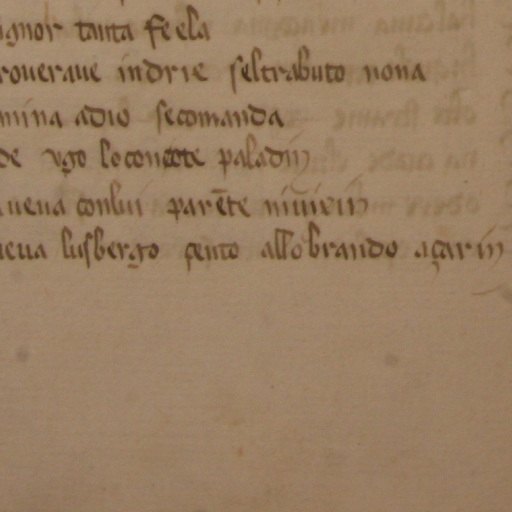 ignor tanta fe ela
roueraue indrie seltrabuto nona
mina adio secomanda
de vgo loconte paladin
aueua conlui parēte niuioin
ueua lusbergo cento allobrando açarin